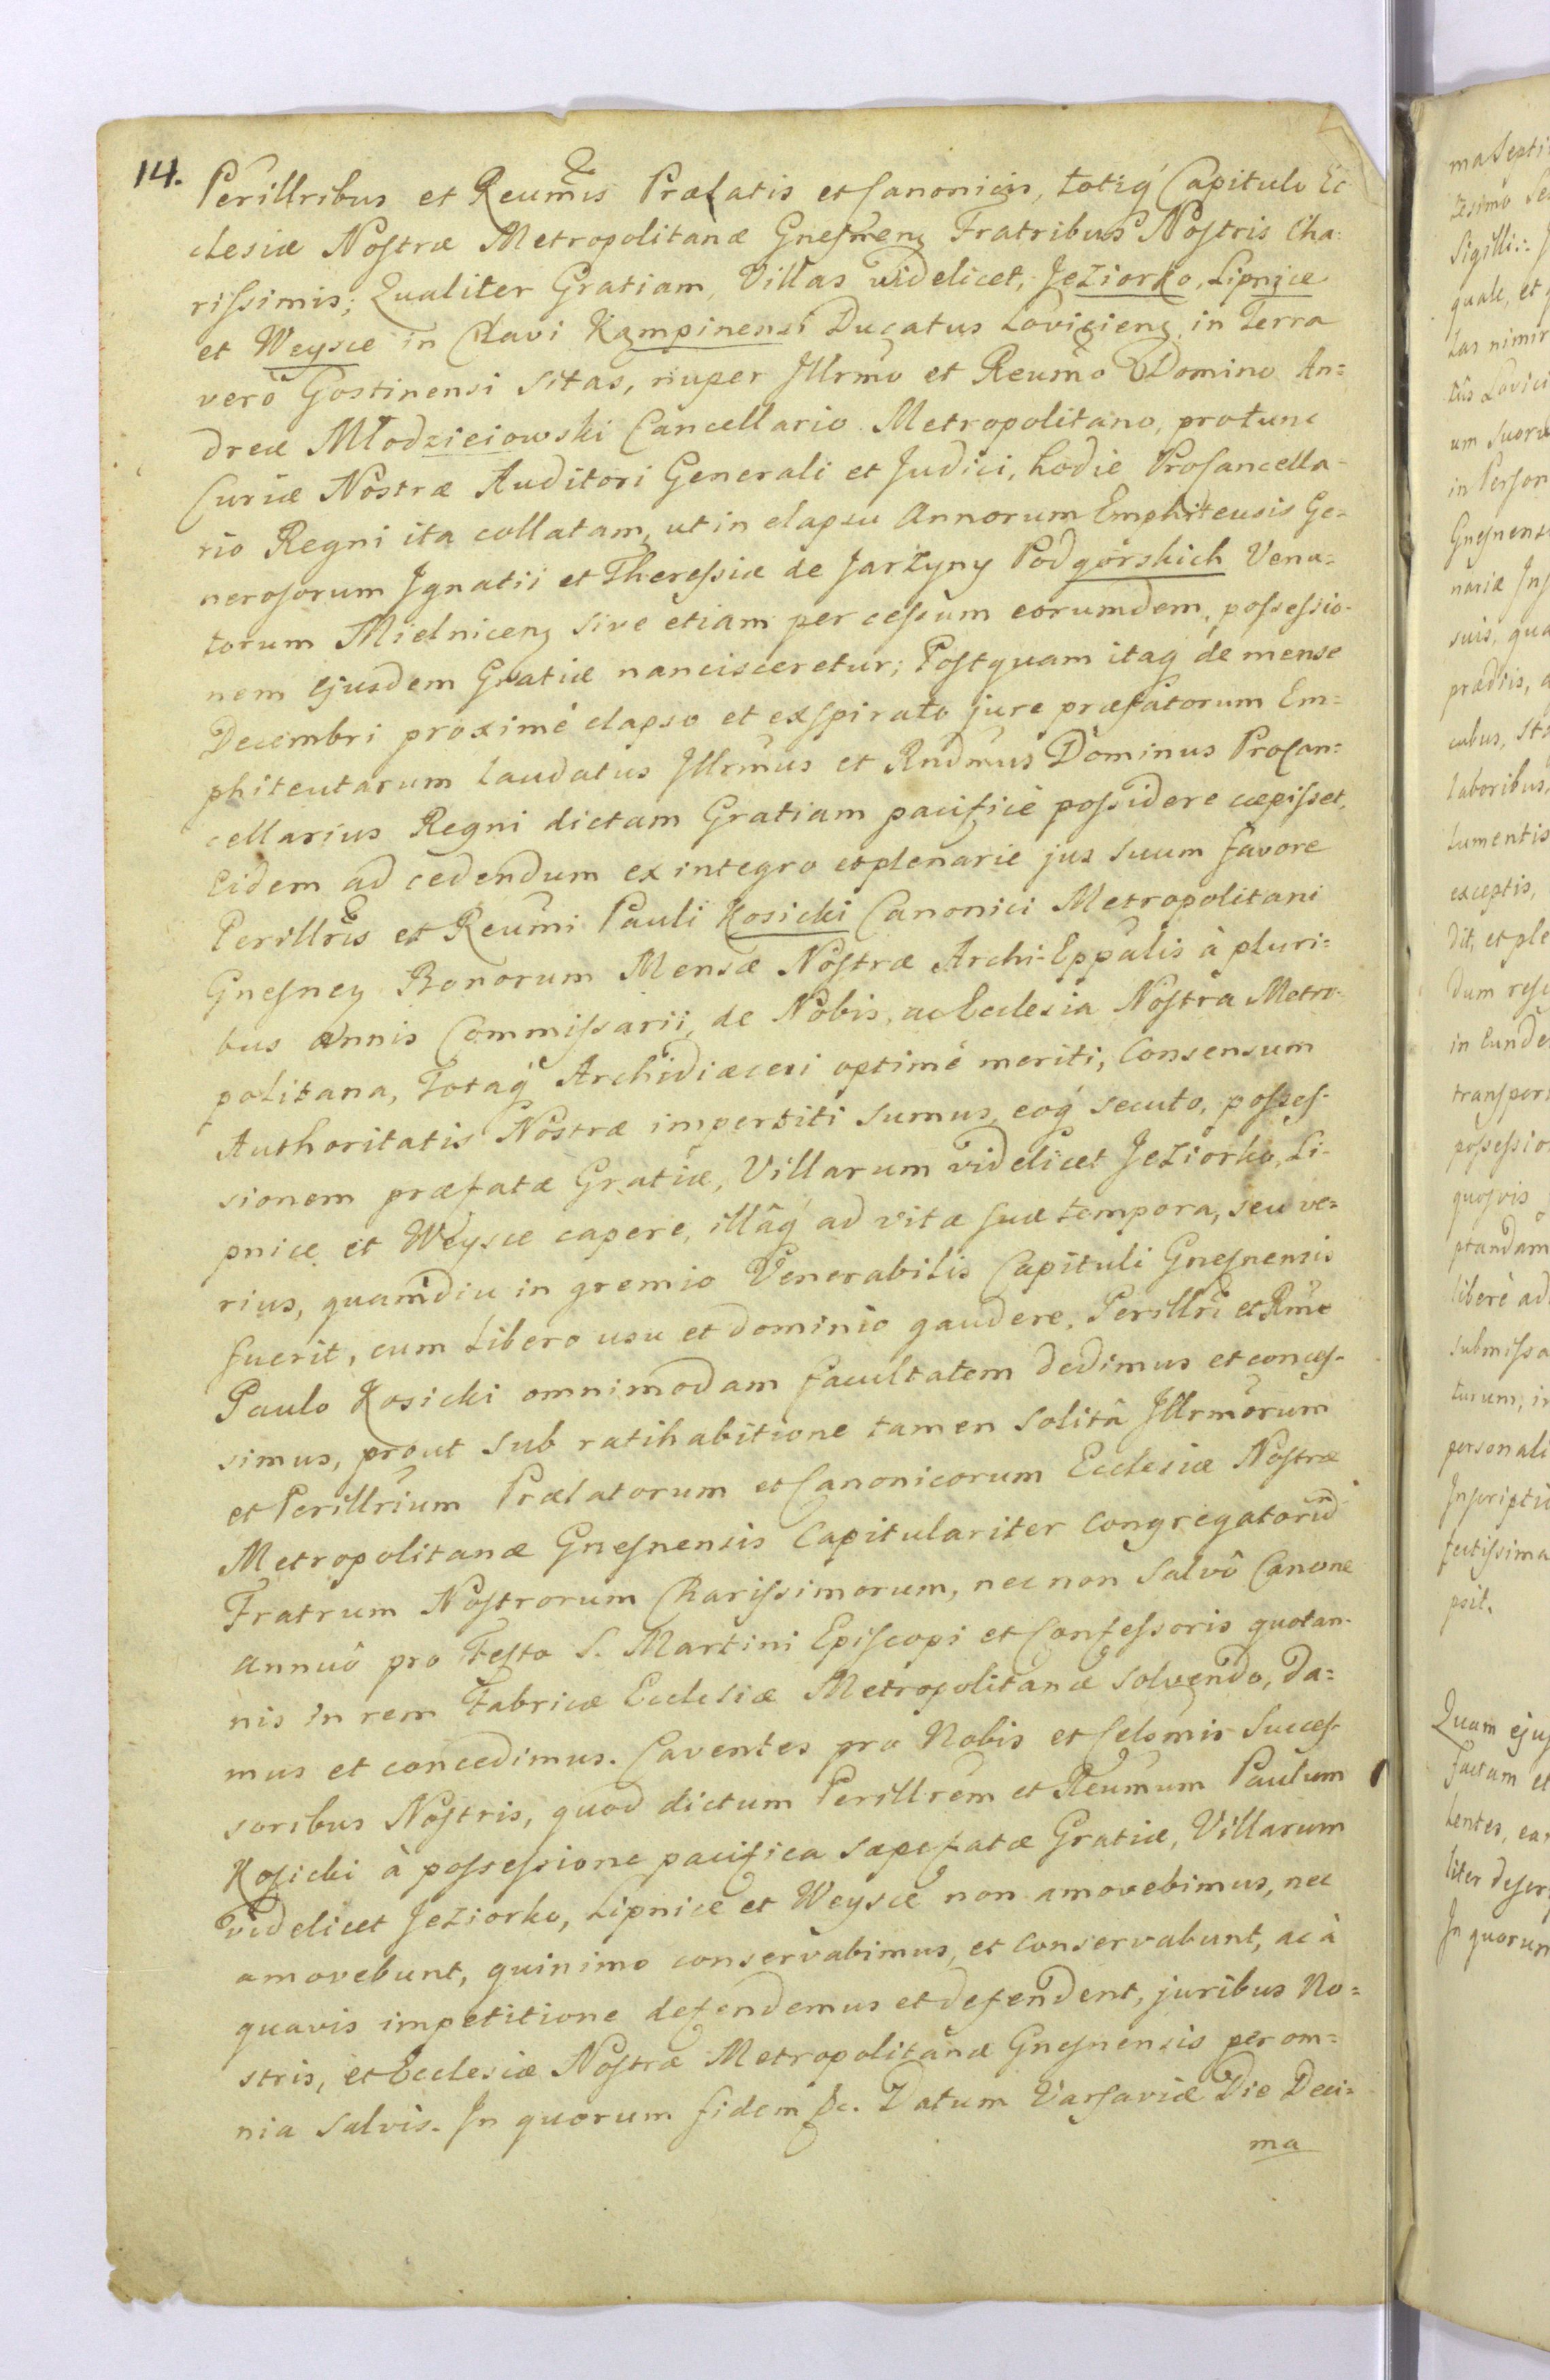 14.
Perillribus et Reumis Prælatis et Canonicis, totiq́ Capitulo Ec
clesiæ Nostræ Metropolitanæ Gnesnens Fratribus Nostris Cha:
rissimis; Qualiter Gratiam, Villas videlicet, Jeziorko, Lipnice
et Weysce in Clavi Kampinensi Ducatus Loviciens in Terra
verò Gostinensi sitas, nuper Illrmo et Reumo Domino An=
dreæ Młodzieiowski Cancellario Metropolitano, protunc
Curiæ Nostræ Auditori Generali et Judici, hodie Procancella-
rio Regni ita collatam, ut in elapsu Annorum Emphiteusis Ge-
nerosorum Ignatii et Theressiæ de Jarzyny Podgórskich Vena=
torum Mielnicens sive etiam per cessum eorumdem, possessio-
nem ejusdem Gratiæ nancisceretur; Postquam itaq de mense
Decembri proximè elapso et exspirato jure præfatorum Em=
phiteutarum laudatus Illrmus et Rndmus Dominus Procan=
cellarius Regni dictam Gratiam pacificè possidere cæpisset,
Eidem ad cedendum ex integro et plenarie jus suum favore
Perillris et Reumi Pauli Kosicki Canonici Metropolitani
Gnesnen Bonorum Mensæ Nostræ Archi-Eppalis à pluri=
bus annis Commissarii, de Nobis, ac Ecclesia Nostra Metro-
politana, Totaq́ Archidiæcesi optimè meriti, Consensum
Authoritatis Nostræ impertiti sumus, eoq́ secuto, posses-
sionem præfatæ Gratiæ, Villarum videlicet Jeziorko, Li-
pnice et Weysce capere, illâq́ ad vitæ suæ tempora, seu ve=
rius, quamdiu in gremio Venerabilis Capituli Gnesnensis
fuerit, cum libero usu et dominio gaudere, Perillri et Rmo
Paulo Kosicki omnimodam facultatem dedimus et conces-
simus, prout sub ratihabitione tamen solitâ Illrmorum
et Perillrium Prælatorum et Canonicorum Ecclesiæ Nostræ
Metropolitanæ Gnesnensis Capitulariter congregatorum
Fratrum Nostrorum Charissimorum, nec non salvô Canone
annuô pro Festo S. Martini Episcopi et Confessoris quotan-
nis in rem Fabricæ Ecclesiæ Metropolitanæ solvendo, da=
mus et concedimus. Caventes pro Nobis et Celsmis Succes-
soribus Nostris, quod dictum Perillrem et Reumum Paulum
Kosicki à possessione pacifica sæpefatæ Gratiæ, Villarum
videlicet Jeziorko, Lipnice et Weysce non amovebimus, nec
amovebunt, quinimo conservabimus, et conservabunt, ac à
quavis impetitione defendemus et defendent, juribus No=
stris, et Ecclesiæ Nostræ Metropolitanæ Gnesnensis per om=
nia salvis. In quorum fidem &c. Datum Varsaviæ Die Deci=
ma